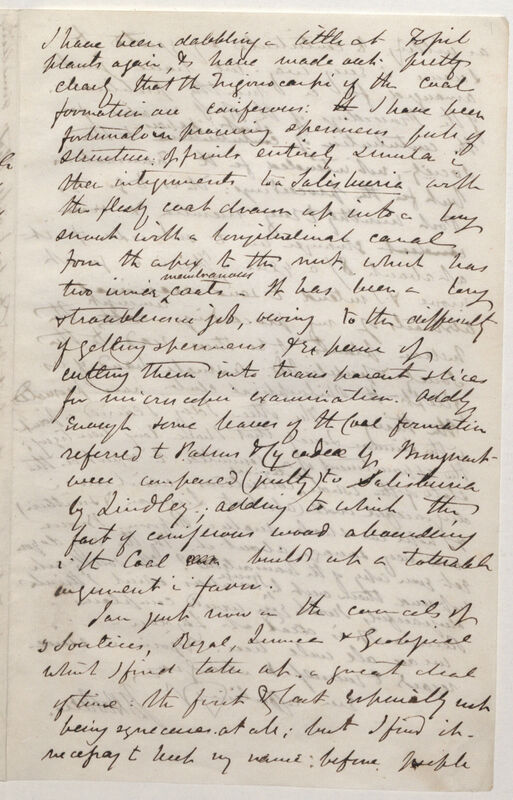 I have been dabbling a little at Fossil
plants again, & have made out pretty
clearly that the Trigonocarpi of the coal
formation are coniferous: I have been
fortunate in procuring specimens full of
structure. of fruits entirely similar in
their integuments to a Salisburia with
the fleshy coat drawn up into a long
snout with a longitudinal canal
from the apex to the nut, which has
two inner membranous coats. It has been a long
& troublesome job, owing to the difficulty
of getting specimens & expense of
cutting them into transparent slices
for microscopic examination. Oddly
enough some leaves of the Coal formation
referred to Palms & Cycadeae by Brongniart
were compared (justly) to Salisburia
by Lindley, adding to which the
fact of coniferous wood abounding
in the Coal builds up a tolerable
argument in favor.
I am just now on the council of
3 Societies, Royal, Linnean & Geological
which I find takes up a great deal
of time: the first & last especially not
being agreeable at all; but I find it
necessary to keep my name before people